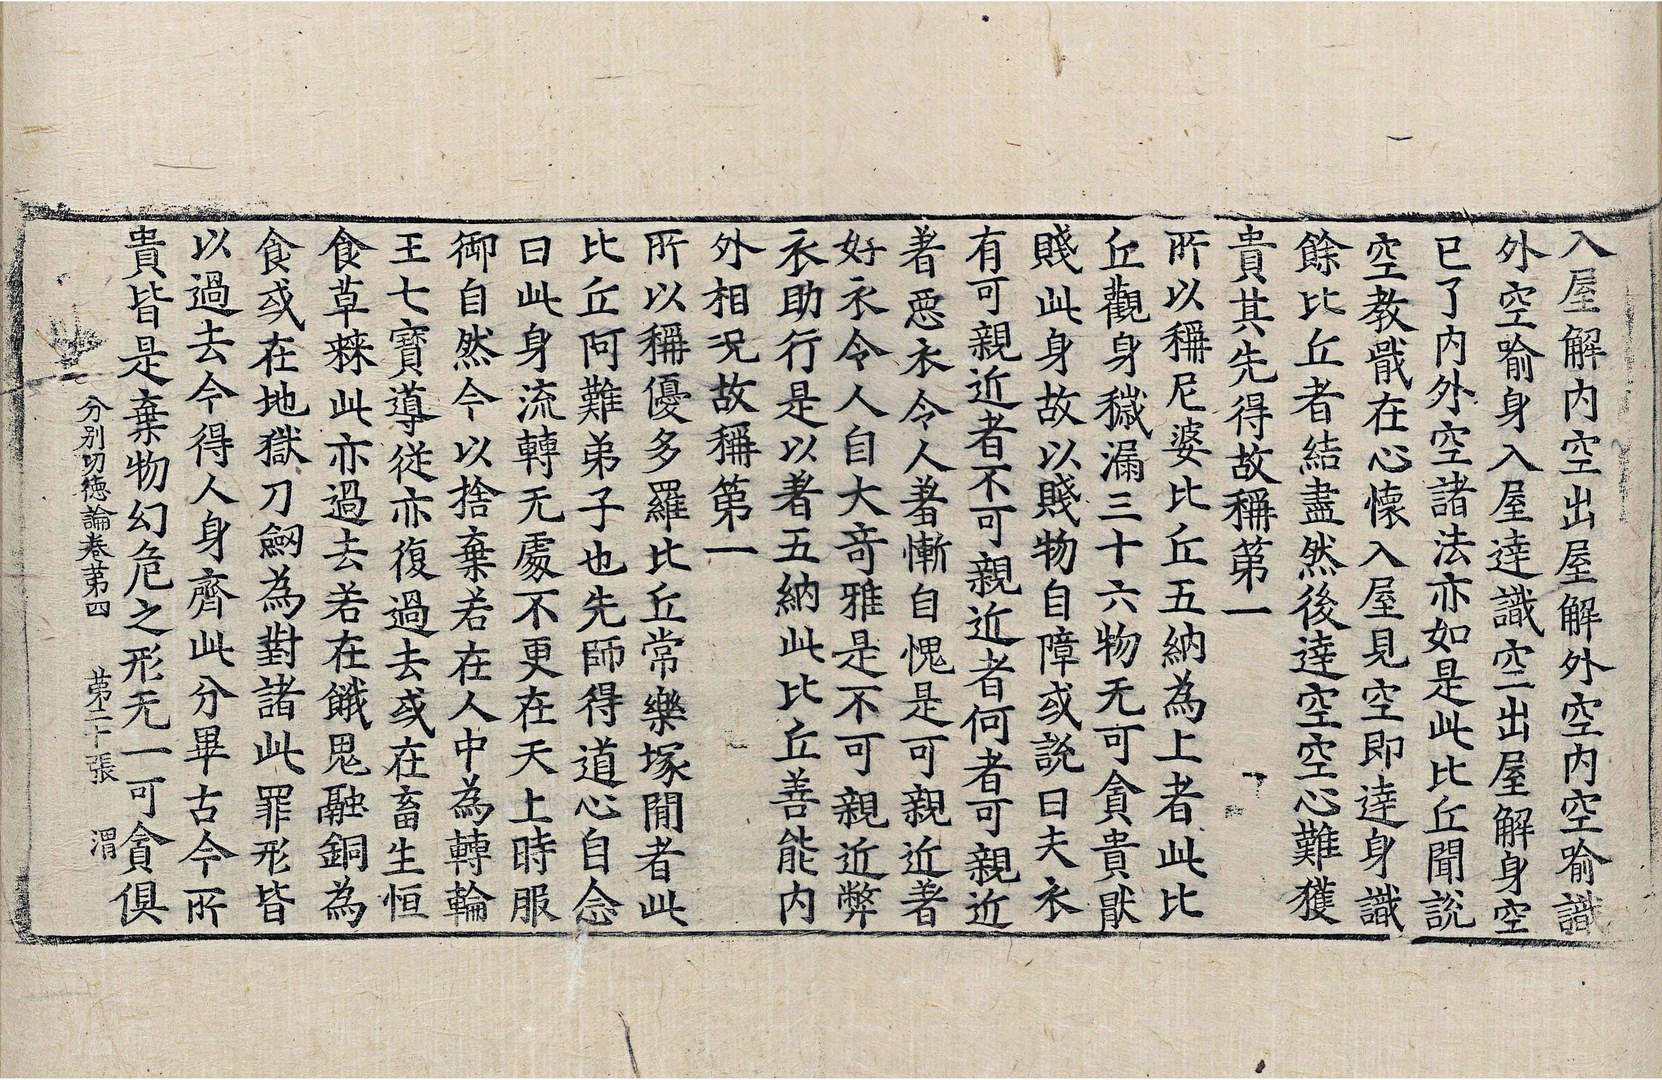 入屋解內空出屋解外空內空喻識
外空喻身入屋達識空出屋解身空
已了內外空諸法亦如是此比丘聞說
空教戢在心懷入屋見空即達身識
餘比丘者結盡然後達空空心難獲
貴其先得故稱第一
所以稱尼婆比丘五納為上者此比
丘觀身穢漏三十六物无可貪貴猒
賤此身故以賤物自障或說曰夫衣
有可親近者不可親近者何者可親近
著惡衣令人著慚自愧是可親近著
好衣令人自大奇雅是不可親近弊
衣助行是以著五納此比丘善能內
外相況故稱第一
所以稱優多羅比丘常樂塚閒者此
比丘阿難弟子也先師得道心自念
曰此身流轉无處不更在天上時服
御自然今以捨棄若在人中為轉輪
王七寶導從亦復過去或在畜生恒
食草棘此亦過去若在餓鬼融銅為
食或在地獄刀劒為對諸此罪形皆
以過去今得人身齊此分畢古今所
貴皆是棄物幻危之形无一可貪俱
分別功德論卷第四 第二十張 渭